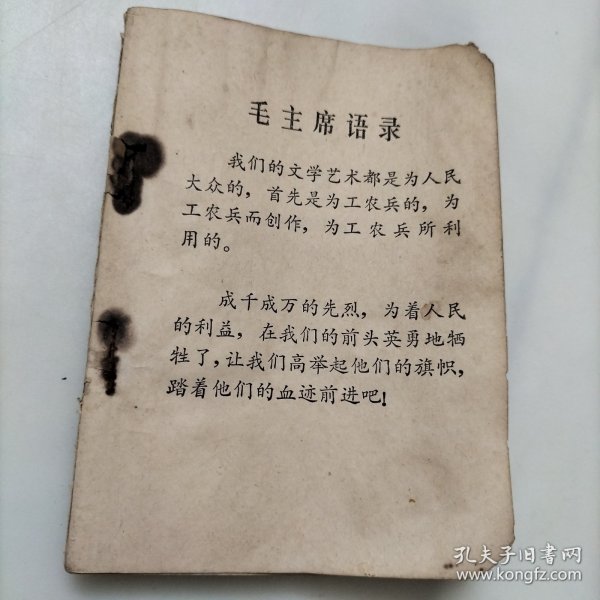 毛主席语录
我们的文学艺术都是为人民
大众的，首先是为工农兵的，为
工农兵而创作，为工农兵所利
用的。
成千成万的先烈，为着人民
的利益，在我们的前头英勇地牺
牲了，让我们高举起他们的旗帜，
踏着他们的血迹前进吧！
孔夫子旧书网
www.kongfz.com